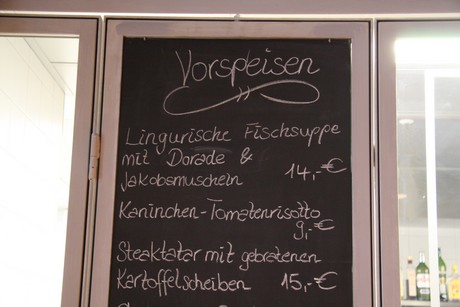 Vorspeisen
Lingurische Fischsuppe
mit Dorade &
Jakobsmuscheln 14,-€
Kaninchen-Tomatenrisotto
9,-€
Steaktatar mit gebratenen
Kartoffelscheiben 15,-€